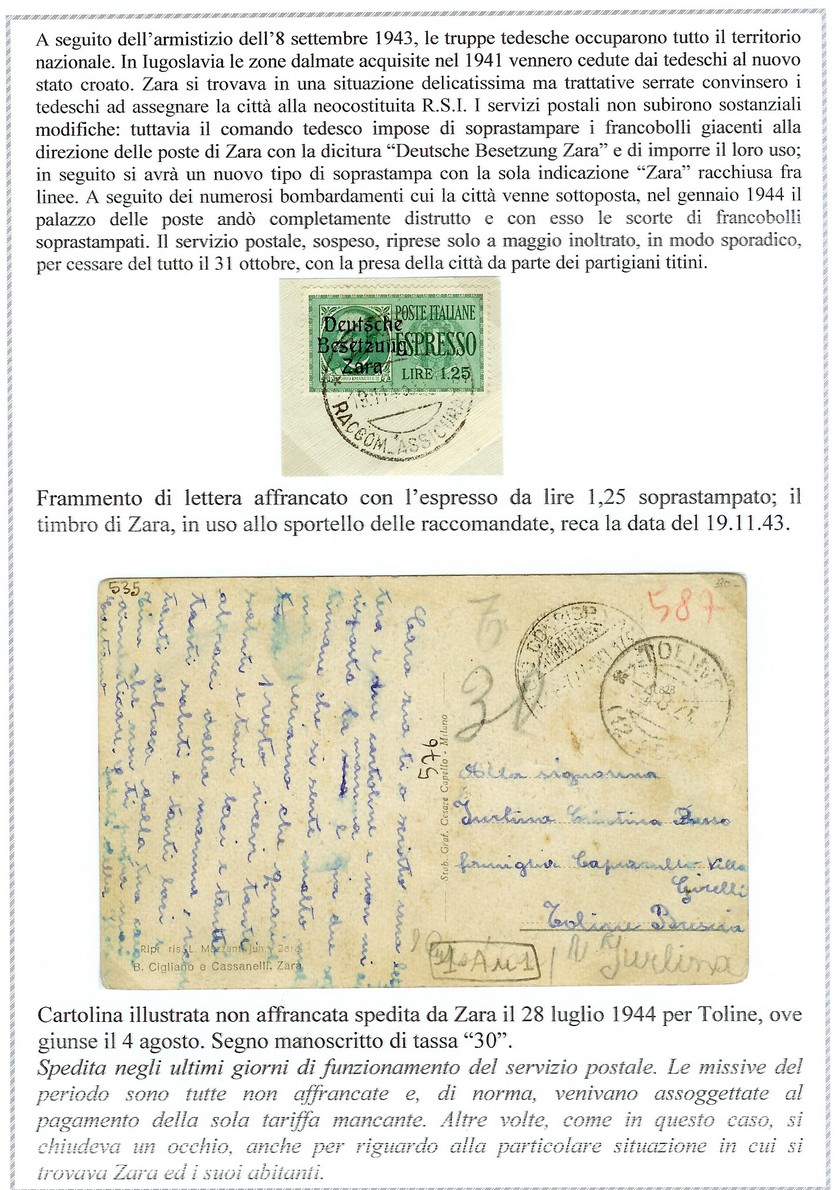 A seguito dell'armistizio dell'8 settembre 1943, le truppe tedesche occuparono tutto il territorio
nazionale. In Iugoslavia le zone dalmate acquisite nel 1941 vennero cedute dai tedeschi al nuovo
stato croato. Zara si trovava in una situazione delicatissima ma trattative serrate convinsero i
tedeschi ad assegnare la città alla neocostituita R.S.I. I servizi postali non subirono sostanziali
modifiche: tuttavia il comando tedesco impose di soprastampare i francobolli giacenti alla
direzione delle poste di Zara con la dicitura “Deutsche Besetzung Zara” e di imporre il loro uso;
in seguito si avrà un nuovo tipo di soprastampa con la sola indicazione “Zara” racchiusa fra
linee. A seguito dei numerosi bombardamenti cui la città venne sottoposta, nel gennaio 1944 il
palazzo delle poste andò completamente distrutto e con esso le scorte di francobolli
soprastampati. Il servizio postale, sospeso, riprese solo a maggio inoltrato, in modo sporadico,
per cessare del tutto il 31 ottobre, con la presa della città da parte dei partigiani titini.
Deutsche
Besetzung
Zara
POSTE ITALIANE
ESPRESSO
LIRE 1.25
RACCOM. ASSICURA
Frammento di lettera affrancato con l'espresso da lire 1,25 soprastampato; il
timbro di Zara, in uso allo sportello delle raccomandate, reca la data del 19.11.43.
535
587
30
TOLINE
576
Cara
tera e due cartoline e non mi
la mamma e
che si sente molto
presto ricevi tante
saluti e tanti baci e tante
abbracci dalla mamma
tanti saluti e tanti baci
tanti abbracci dalla tua cara
che non ti
Stab. Graf. Cesare Capello - Milano
Alla signorina
Jurlina Cristina Presso
famiglia Villa
Girelli
Toline Brescia
Jurlina
Ripr. ris. L. Mazzani jun. Zara
B. Cigliano e Cassanelli. Zara
Cartolina illustrata non affrancata spedita da Zara il 28 luglio 1944 per Toline, ove
giunse il 4 agosto. Segno manoscritto di tassa “30”.
Spedita negli ultimi giorni di funzionamento del servizio postale. Le missive del
periodo sono tutte non affrancate e, di norma, venivano assoggettate al
pagamento della sola tariffa mancante. Altre volte, come in questo caso, si
chiudeva un occhio, anche per riguardo alla particolare situazione in cui si
trovava Zara ed i suoi abitanti.